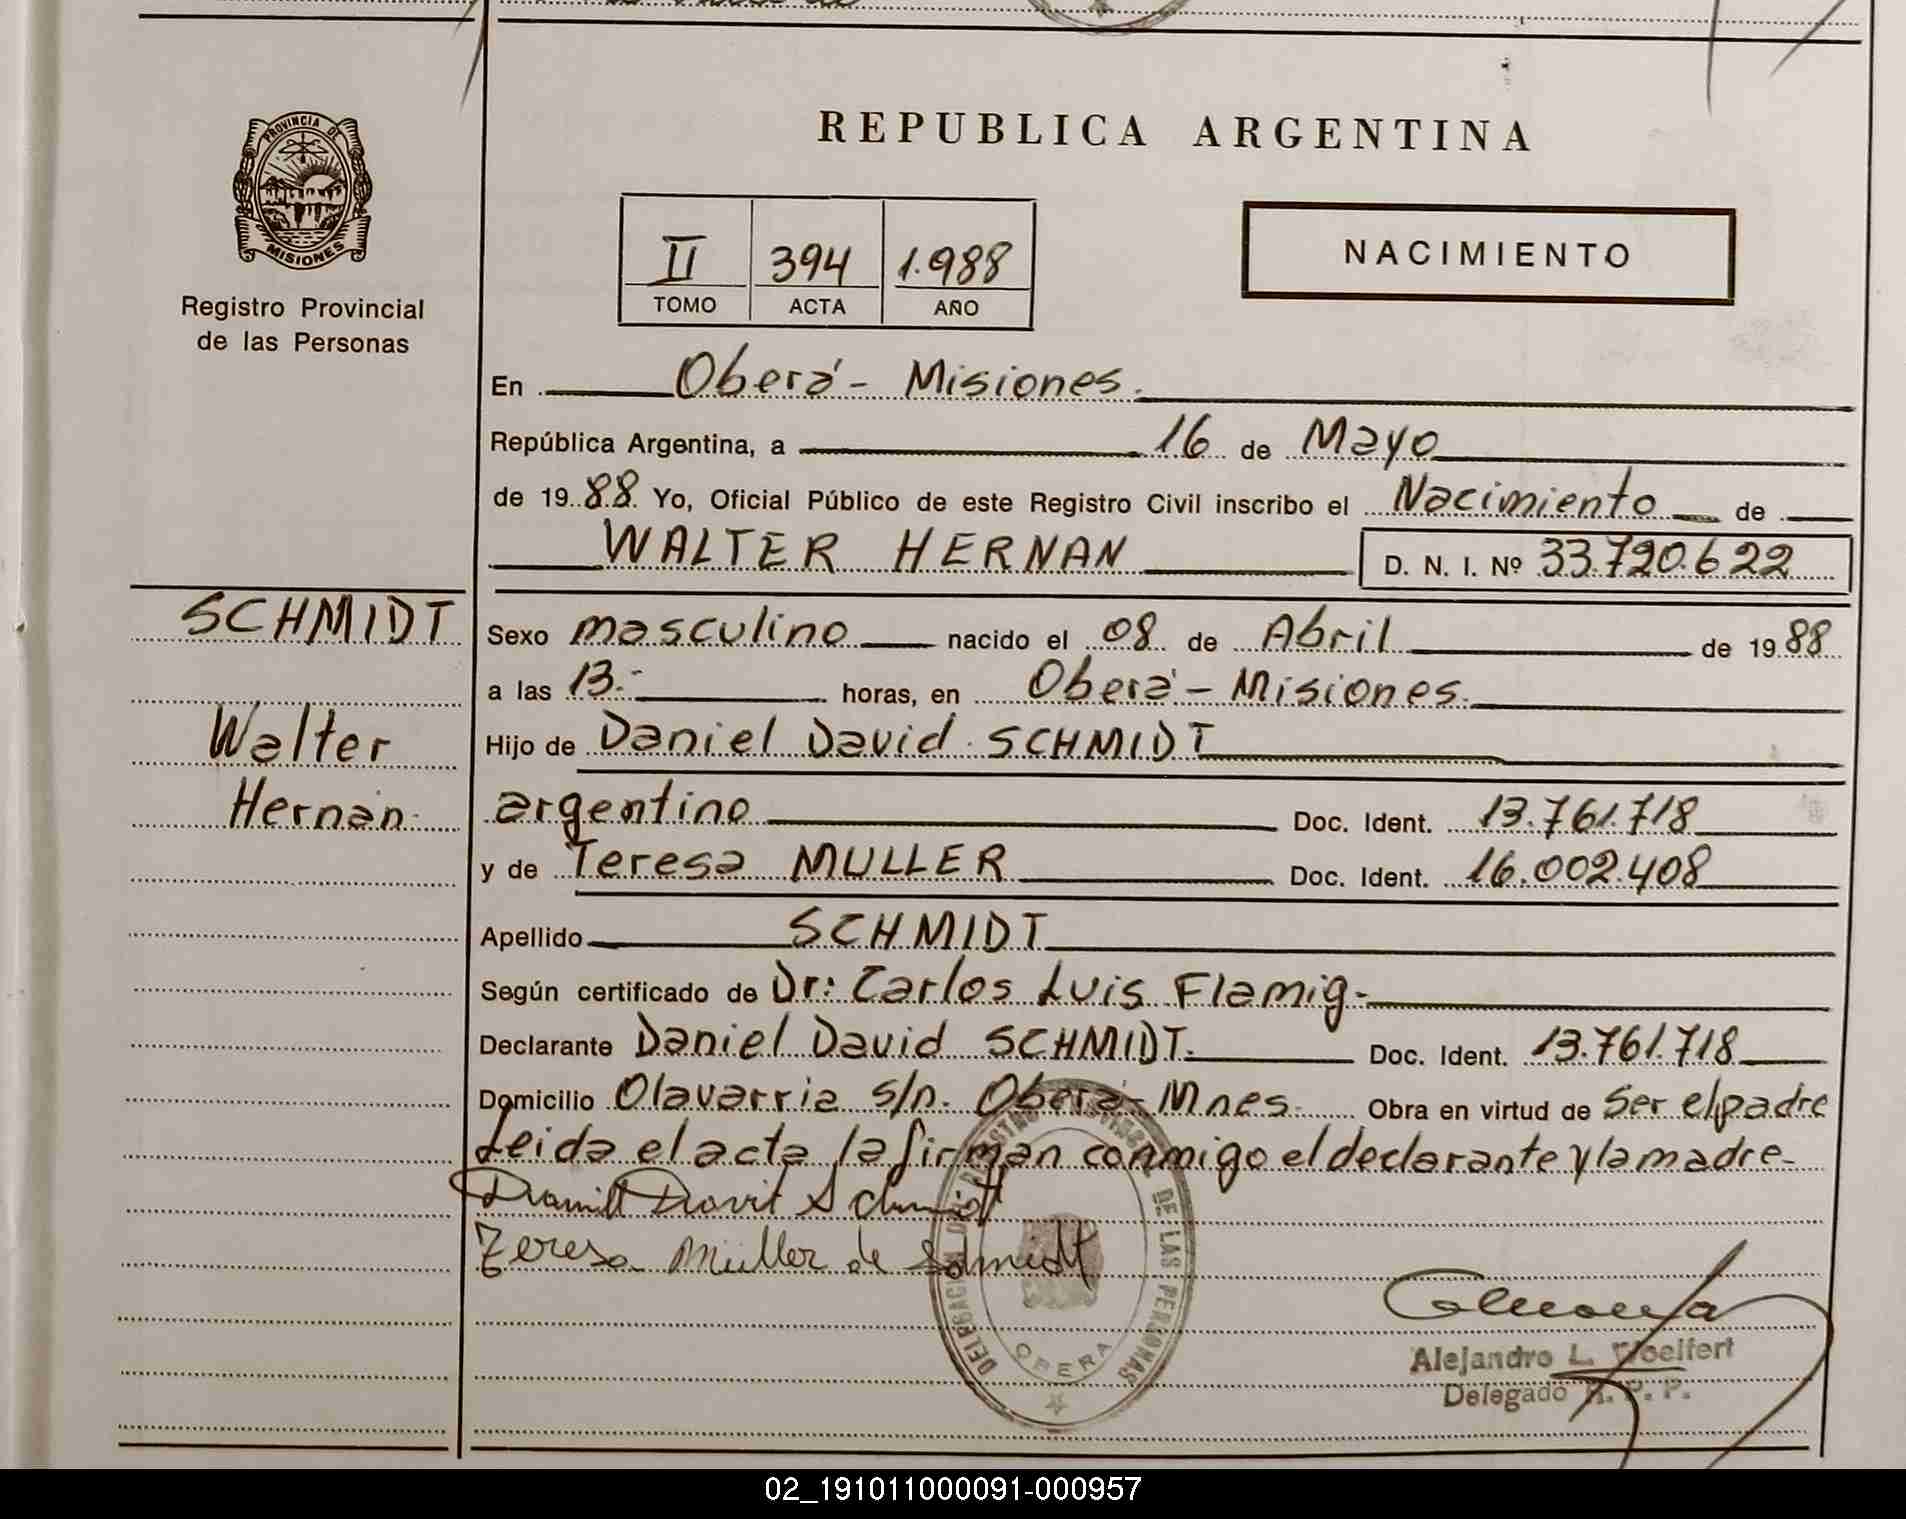 REPUBLICA ARGENTINA
PROVINCIA DE
MISIONES
Registro Provincial
de las Personas
II 394 1.988
TOMO ACTA AÑO
NACIMIENTO
En Oberá - Misiones.
República Argentina, a 16 de Mayo
de 1988 Yo, Oficial Público de este Registro Civil inscribo el Nacimiento de
WALTER HERNAN D. N. I. Nº 33.720.622
SCHMIDT
Walter
Hernán
Sexo masculino nacido el 08 de Abril de 1988
a las 13.- horas, en Oberá - Misiones.
Hijo de Daniel David SCHMIDT
argentino Doc. Ident. 13.761.718
y de Teresa MULLER Doc. Ident. 16.002.408
Apellido SCHMIDT
Según certificado de Dr: Carlos Luis Flamig-
Declarante Daniel David SCHMIDT. Doc. Ident. 13.761.718
Domicilio Olavarria s/n. Oberá - Mnes. Obra en virtud de Ser el padre
Leida el acta la firman conmigo el declarante y la madre-
Teresa Müller de Schmidt
DE LAS PERSONAS
OBERA
Alejandro L. Woelfert
Delegado R. P. P.
02_191011000091-000957